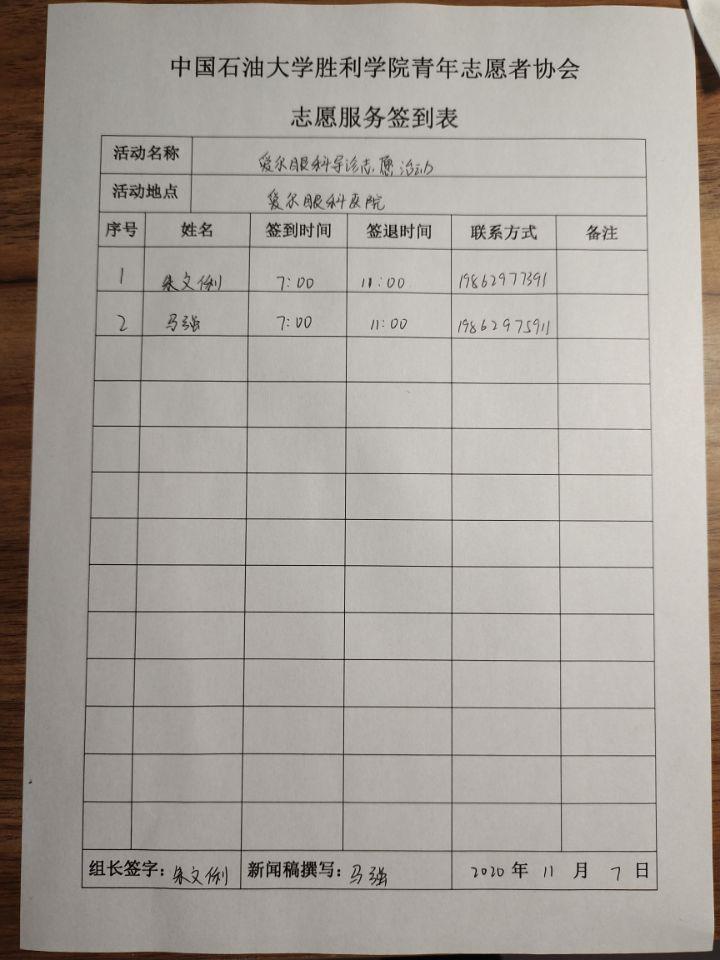 中国石油大学胜利学院青年志愿者协会
志愿服务签到表
活动名称 爱尔眼科导诊志愿活动
活动地点 爱尔眼科医院
序号 姓名 签到时间 签退时间 联系方式 备注
1 朱文俐 7:00 11:00 19862977391
2 马强 7:00 11:00 19862975911
组长签字：朱文俐 新闻稿撰写：马强 2020年 11 月 7 日